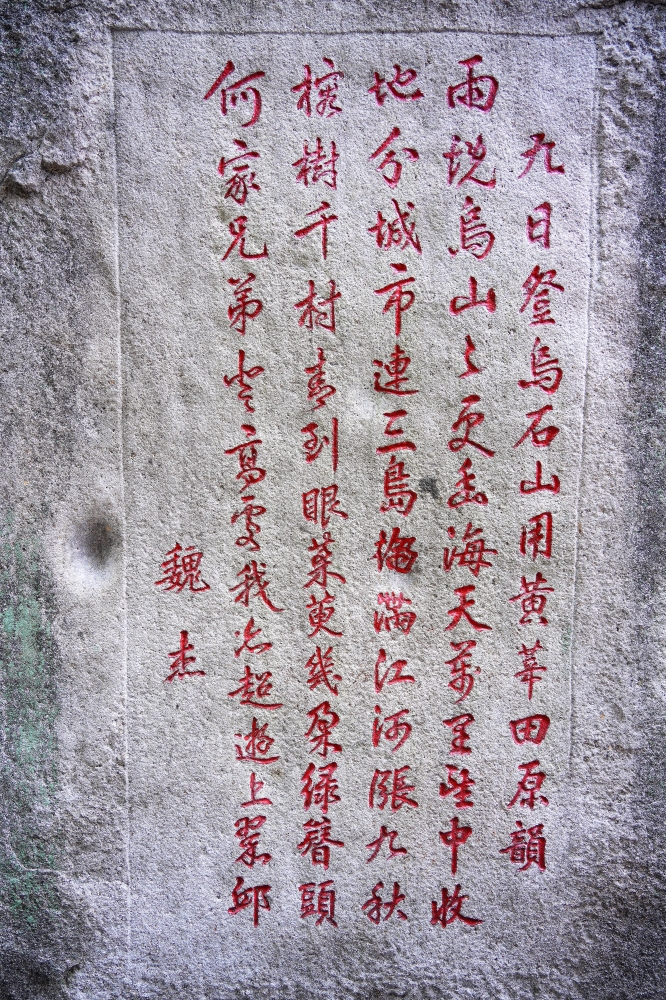 九日登烏石山用黃莘田原韻
雨烏山々更幽海天萬里望中收
地分城市連三島滿江河漲九秋
榕樹千村青到眼茱萸幾朵綠簪頭
何家兄弟登高處我亦超遊上翠邱
魏杰